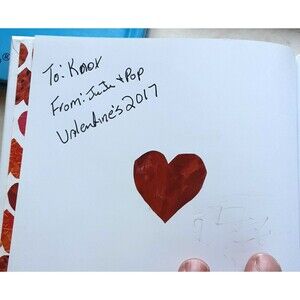 To: Knox
From: JuJu & Pop
Valentine's 2017